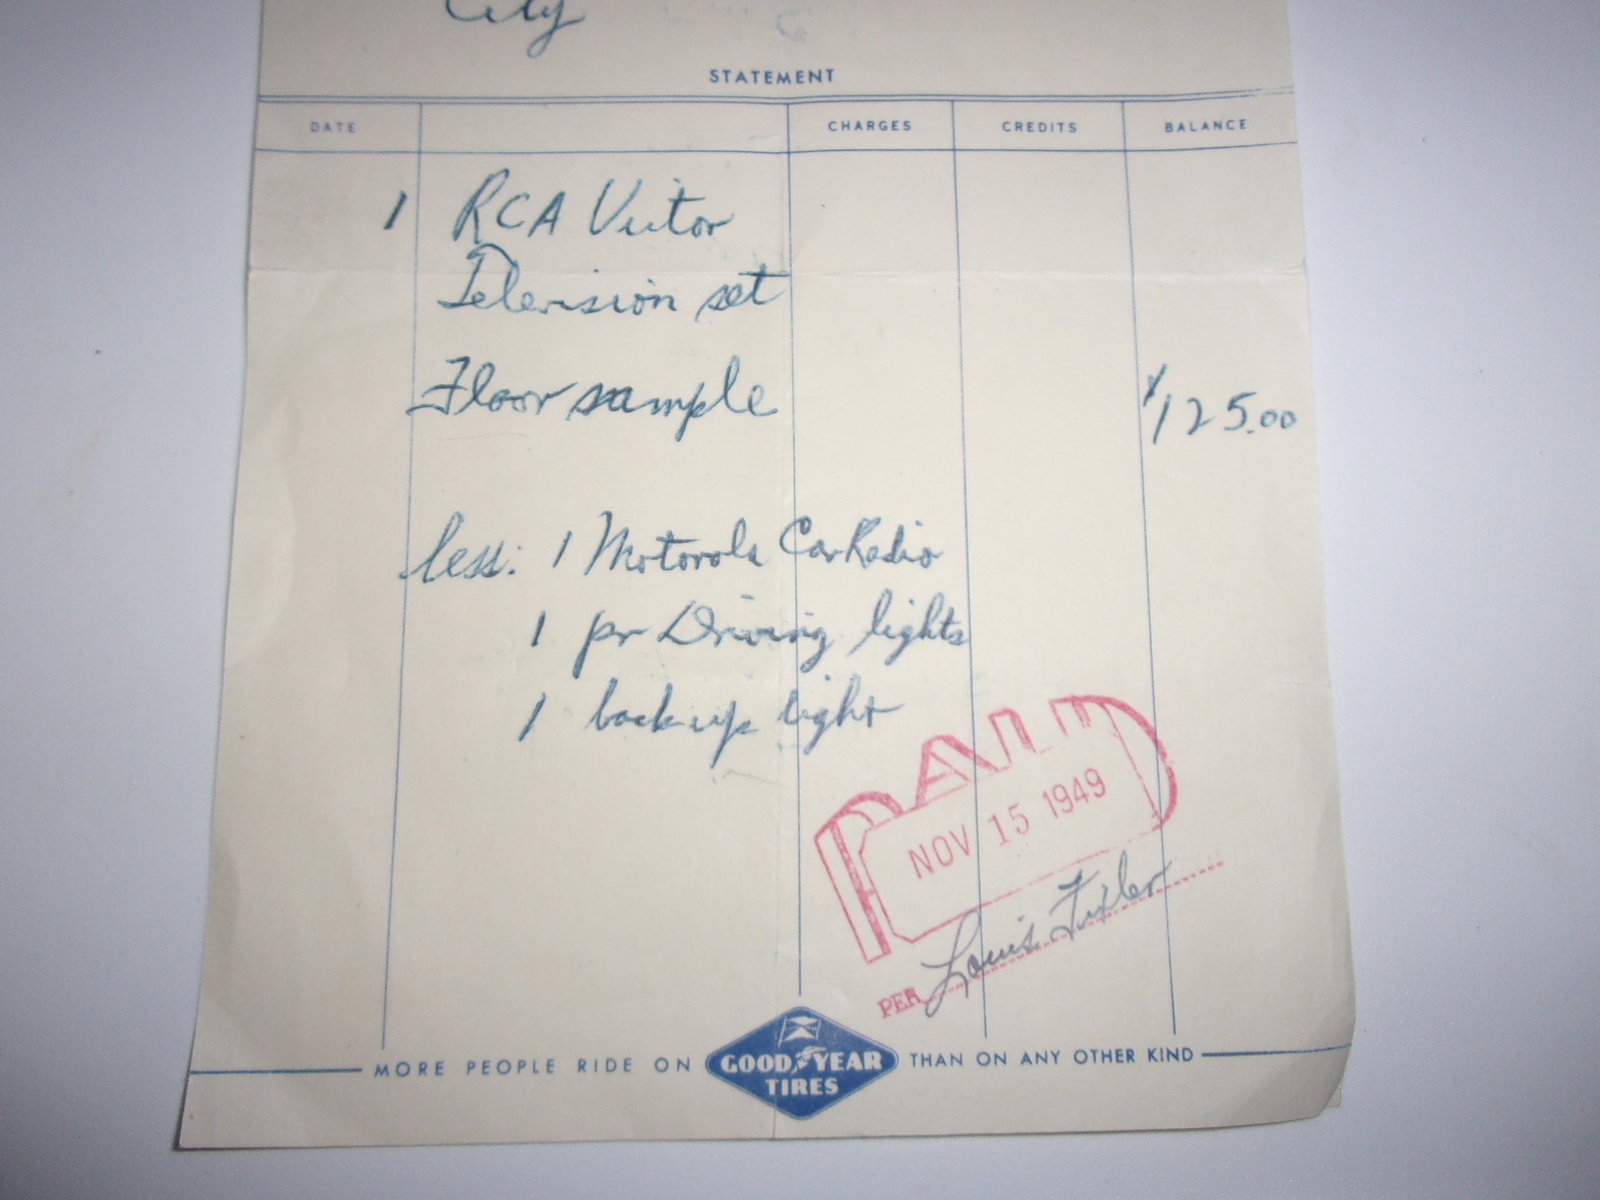 City
STATEMENT
DATE CHARGES CREDITS BALANCE
1 RCA Victor
Television set
Floor sample $125.00
less: 1 Motorola Car Radio
1 pr Driving lights
1 back up light
PAID
NOV 15 1949
PER Louis
MORE PEOPLE RIDE ON GOODYEAR TIRES THAN ON ANY OTHER KIND